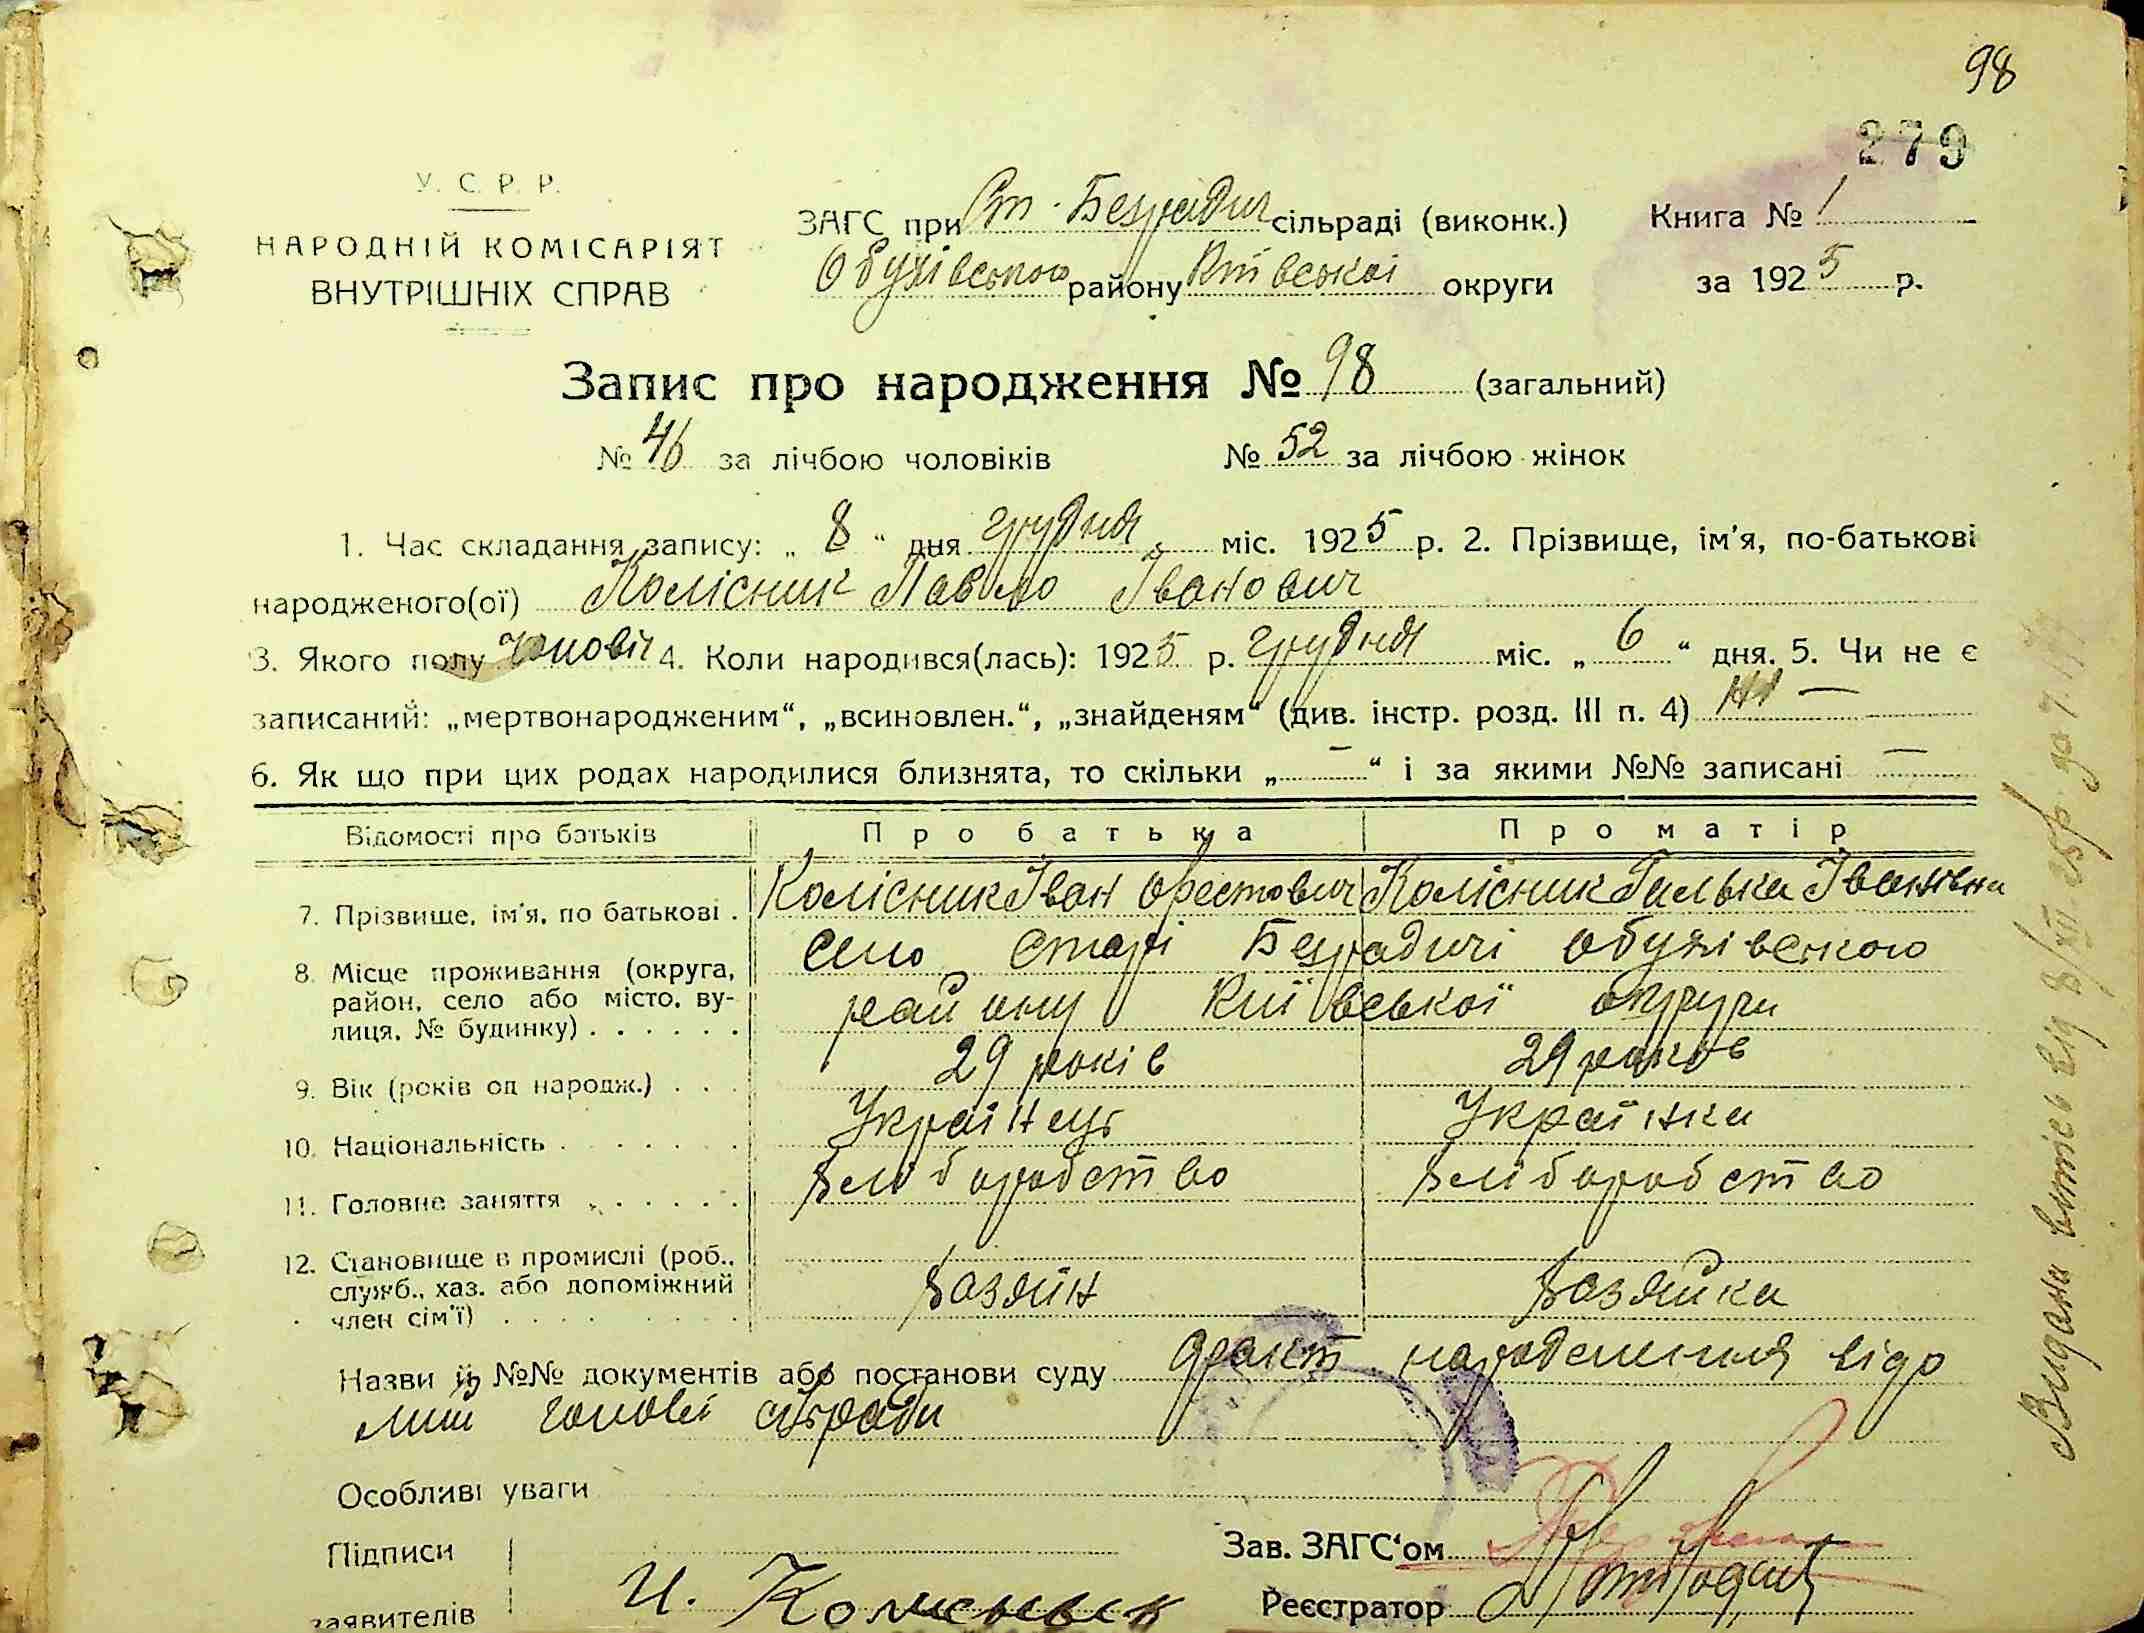 98
279
У. С. Р. Р.
НАРОДНІЙ КОМІСАРІЯТ
ВНУТРІШНІХ СПРАВ
ЗАГС при Ст. Безрадич сільраді (виконк.)
Обухівського району Київської округи
Книга № 1
за 1925 р.
Запис про народження № 98 (загальний)
№ 46 за лічбою чоловіків № 52 за лічбою жінок
1. Час складання запису: „ 8 “ дня грудня міс. 1925 р. 2. Прізвище, ім'я, по-батькові
народженого(ої) Колісник Павло Іванович
3. Якого полу чоловіч 4. Коли народився(лась): 1925 р. грудня міс. „ 6 “ дня. 5. Чи не є
записаний: „мертвонародженим“, „всиновлен.“, „знайденям“ (див. інстр. розд. III п. 4) ні —
6. Як що при цих родах народилися близнята, то скільки „ — “ і за якими №№ записані —
Відомості про батьків Про батька Про матір
7. Прізвище, ім'я, по батькові . Колісник Іван Орестович Колісник Галька Іванівна
8. Місце проживання (округа, район, село або місто, вулиця, № будинку) . . . . . . село Старі Безрадичі Обухівського
району Київської округи
9. Вік (років од народж.) . . . 29 років 29 років
10. Національність . . . . . . . Українець Українка
11. Головне заняття . . . . . . хліборобство хліборобство
12. Становище в промислі (роб., служб., хаз. або допоміжний член сім'ї) . . . . . . . . хазяїн хазяйка
Назви й №№ документів або постанови суду факт народження відо
мий голові сільради
Особливі уваги
Підписи
заявителів И. Колісник
Зав. ЗАГС'ом
Реєстратор
Видана витяг від 8/XII 25р за